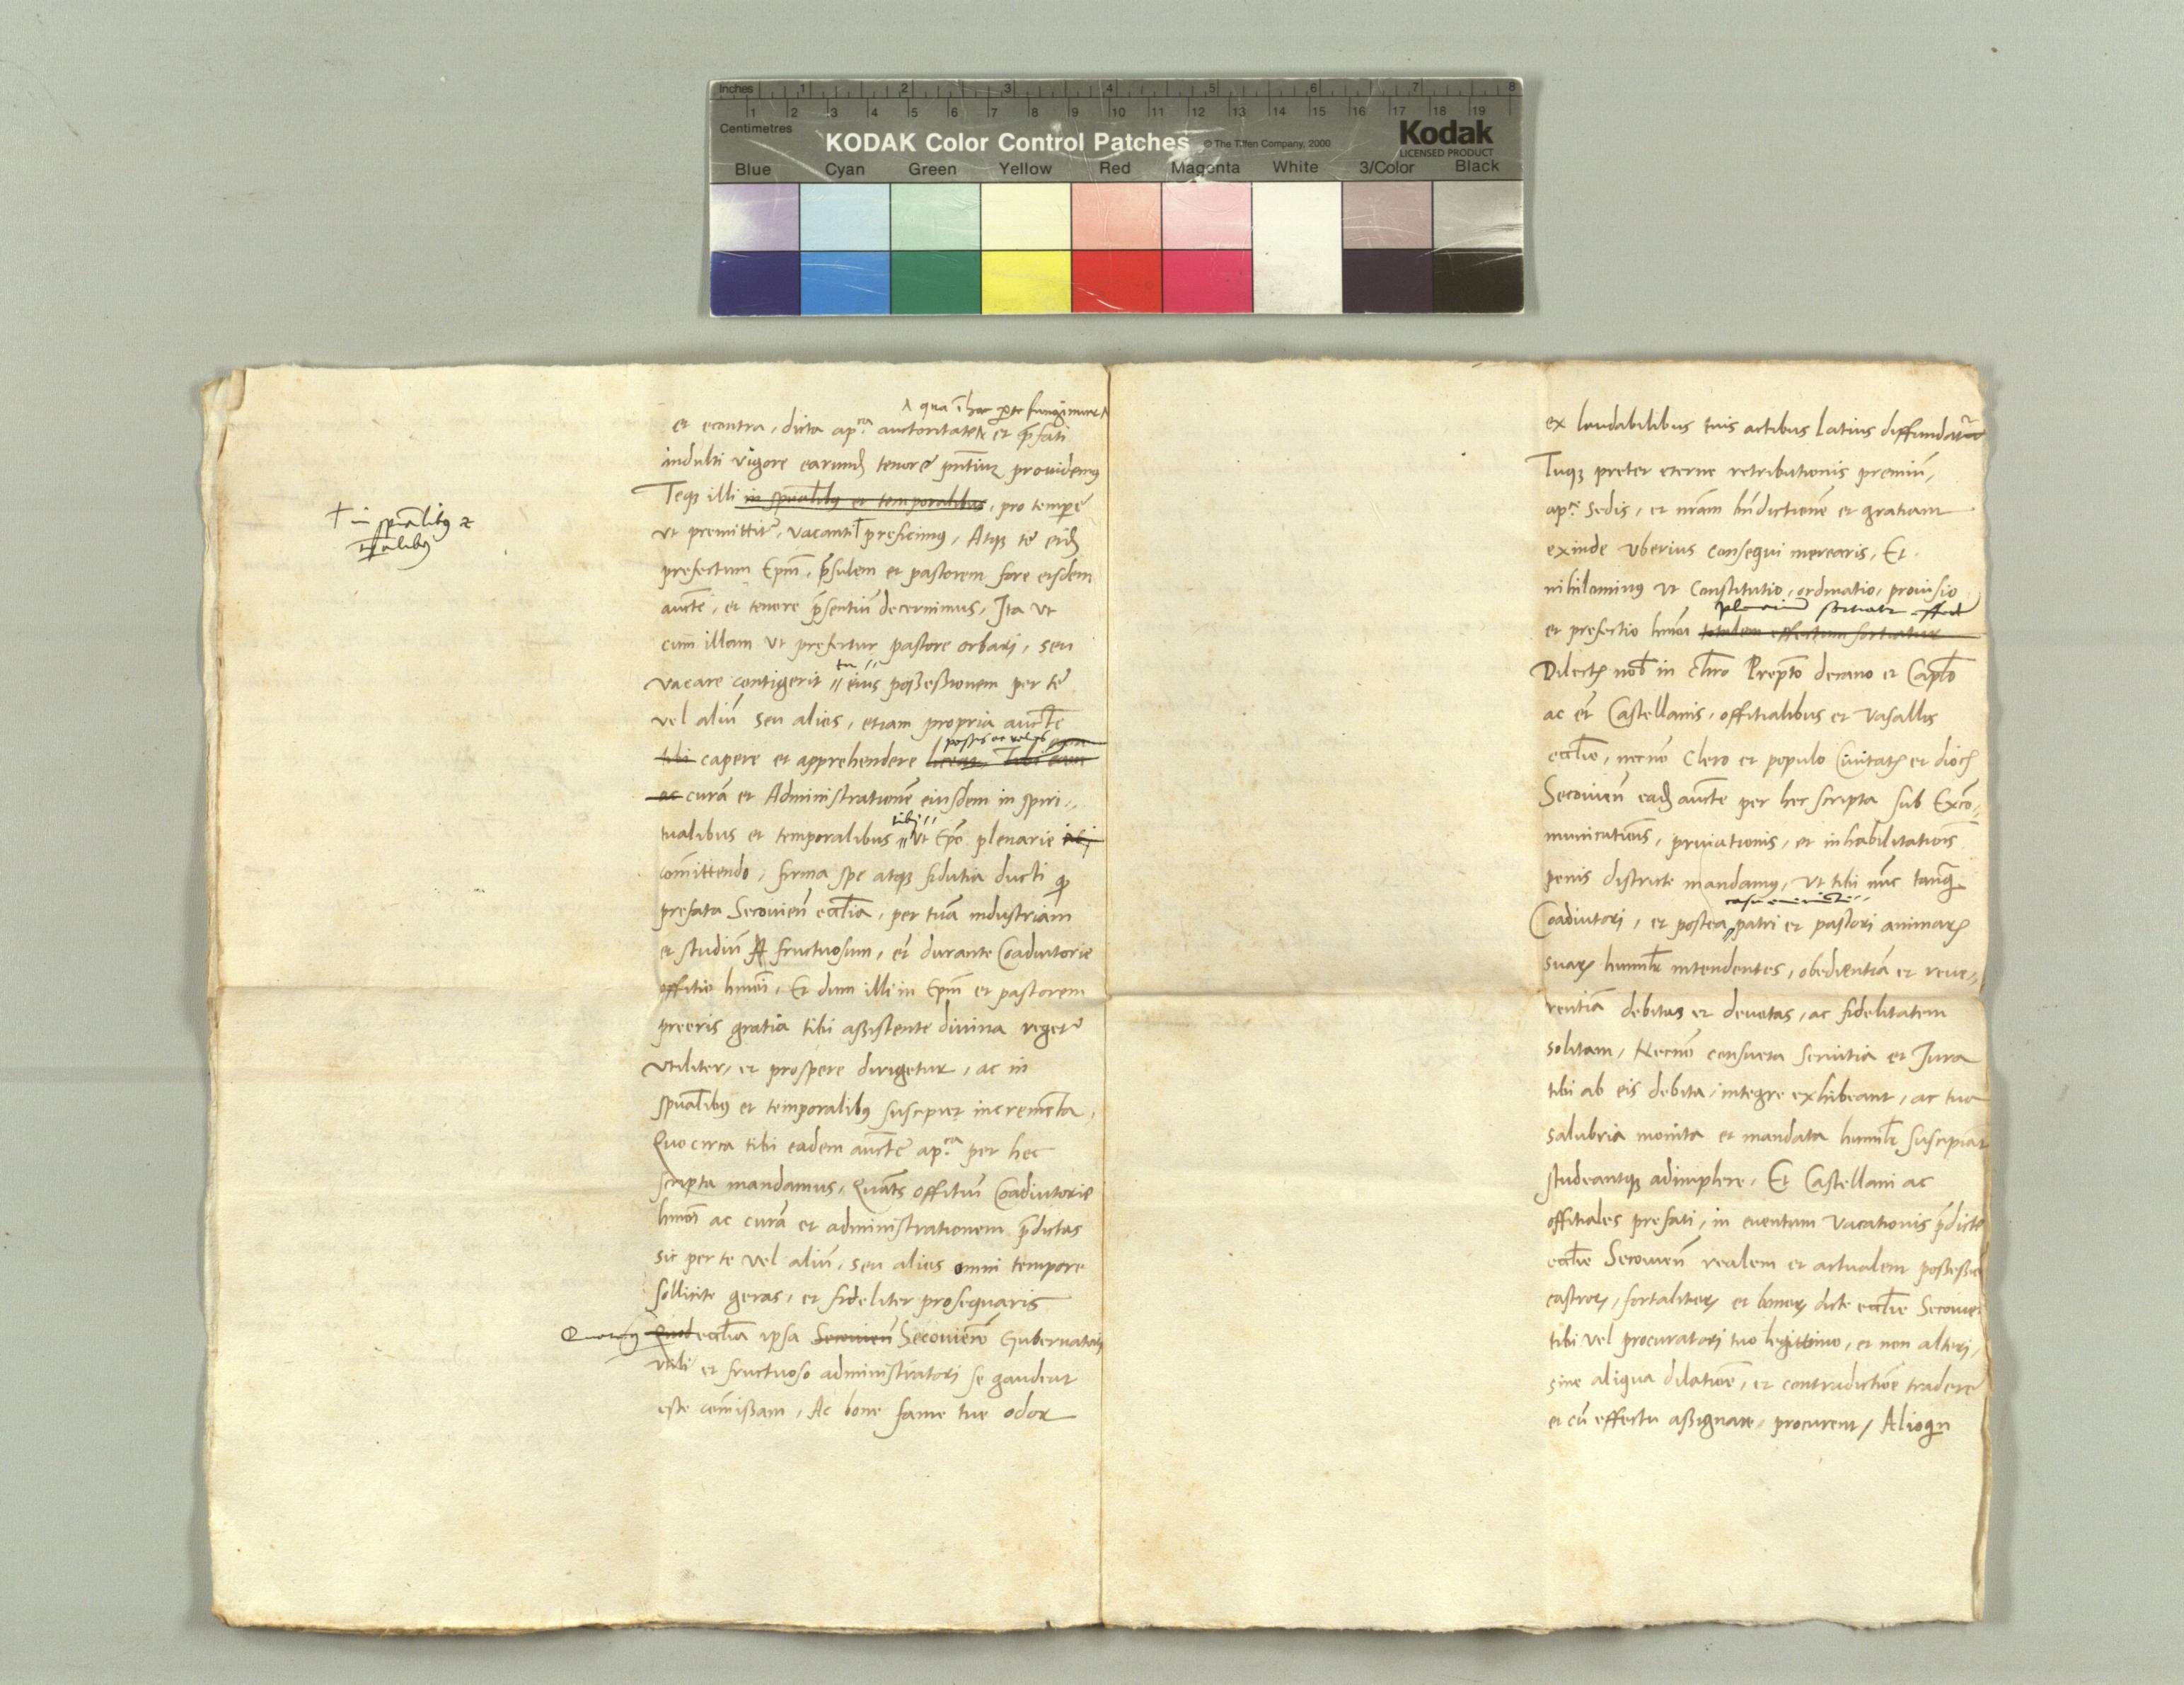 Inches 1 2 3 4 5 6 7 8
1 2 3 4 5 6 7 8 9 10 11 12 13 14 15 16 17 18 19
Centimetres
KODAK Color Control Patches © The Tiffen Company, 2000 Kodak
LICENSED PRODUCT
Blue Cyan Green Yellow Red Magenta White 3/Color Black
qua ĩ hac ꝑte fungimur
et econtra, dicta ap.ca auctoritate et p̃fati
indulti vigore earund tenore pñtium providemus
Teqꝫ illi in spũalibus et temporalibus, pro tempe
✝ in spũalibus et
tp̃alibus
vt premittitr, vacanti preficimus, Atqꝫ te eid
prefectum Ep̃m, p̃sulem et pastorem fore eisdem
aucte, et tenore p̃sentiũ decernimus, Ita vt
cum illam vt prefertur pastore orbari, seu
tu
vacare contigerit eius possessionem per te
vel aliũ seu alios, etiam propria aucte
posses et valeas
tibi capere et apprehendere liceat tibi
ac curã et Administrationẽ eiusdem in spiri
tibi
tualibus et temporalibus vt Epõ plenarie
com̃ittendo, firma spe atqꝫ fidutia ducti ꝙ
prefata Secovieñ eccl̃ia, per tuã industriam
et studiũ fructuosum, et durante Coadiutorie
offitio hmõi, Et dum illi in Ep̃m et pastorem
preeris gratia tibi assistente divina regetr
vtiliter, et prospere dirigetur, ac in
spũalibus et temporalibus suscipiet incremẽta,
Quocirca tibi eadem aucte ap.ca per hec
scripta mandamus, Quatẽs offitiũ Coadiutorie
hmõi ac curã et administrationem p̃dictas
sic per te vel aliũ, seu alios omni tempore
sollicite geras, et fideliter prosequaris
Quod eccl̃ia ipsa Secovieñ Secovieñ Gubernatori
vtili et fructuoso administratori se gaudeat
esse com̃issam, Ac bone fame tue odor
ex laudabilibus tuis actibus latius diffundatur
Tuqꝫ preter eterne retributionis premiũ,
ap.ce Sedis, et nr̃am bñdictionẽ et gratiam
exinde vberius consequi merearis, Et
nihilominus vt Constitutio, ordinatio, provisio
plenariũ sortiatr effectũ
et prefectio hmõi totalem effectum sortiatur
Dilectis nob̃ in chr̃o Prep̃to decano et Capl̃o
ac et̃ Castellanis, offitialibus et vasallis
eccl̃ie, necnõ Clero et populo Civitatis et dioc
Secovieñ ead aucte per hec scripta sub Excõ
municationis, privationis, et inhabilitationis
penis districte mandamus, vt tibi nũc tanqꝫ
Coadiutori, et postea patri et pastori animarꝫ
suarꝫ humilr̃ intendentes, obedientiã et reve
rentiã debitas et devotas, ac fidelitatem
solitam, Necnõ consueta servitia et Jura
tibi ab eis debita, integre exhibeant, ac tua
salubria monita et mandata humilr̃ suscipiãt
studeantqꝫ adimplere, Et Castellani ac
offitiales prefati, in eventum vacationis p̃dicte
eccl̃ie Secovieñ realem et actualem possessiõ
castrorꝫ, fortalitiorꝫ et bonorꝫ dicte eccl̃ie Secovieñ
tibi vel procuratori tuo legittimo, et non alteri,
sine aliqua dilatione, et contradictiõe tradere
et cũ effectu assignare, procurent, Alioqn